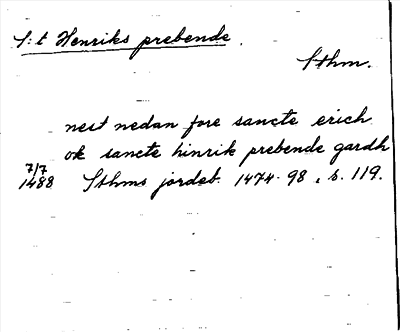 S:t Henriks prebende.
Sthm.
nest nedan fore sancte erich
ok sancte hinrik prebende gardh
7/7
1488 Sthms jordeb. 1474-98, s. 119.